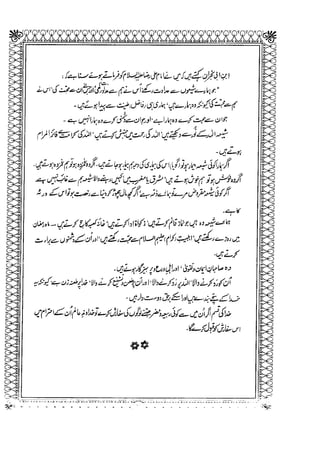 ابن ابی نجران کہتے ہیں کہ میں نے امام علی رضا علیہ السلام کو فرماتے ہوئے سنا ہے کہ:
"جو ہمارے شیعوں سے عداوت رکھے اس نے ہم سے عداوت رکھی اور جو ان سے محبت کی اس نے
ہم سے محبت کی کیونکہ وہ ہمارے ہیں ہماری طینت سے پیدا ہوئے ہیں۔
جو ان سے محبت کرے وہ ہمارا ہے اور جو ان سے دشمنی کرے وہ ہمارا نہیں ہے۔
شیعہ اللہ کے نور سے دیکھتے ہیں اللہ کی رحمت میں اللہ کی
ہوتے ہیں۔
اگر ہمارا کوئی شیعہ بیمار ہو تو اس کی بیماری کی وجہ سے ہم بیمار ہو جاتے ہیں
وہ خوش ہو تو ہم خوش ہوتے ہیں مشرق یا مغرب میں کہیں ہمارا شیعہ ہم سے غائب نہیں ہے
اگر کوئی شیعہ قرض مرے تو ہمارے ذمہ ہے اگر کچھ مال چھوڑ کر دنیا سے رخصت ہو تو اس کے ورثہ
کا ہے۔
ہمارے شیعہ وہ ہیں جو نماز قائم کرتے ہیں زکوٰۃ ادا کرتے ہیں خانہ کعبہ کا حج کرتے ہیں۔ ماہ رمضان
میں روزے رکھتے ہیں اہلبیت علیہم السلام سے محبت رکھتے ہیں اور ان کے دشمنوں سے برأت
کرتے ہیں۔
وہ صاحبان ایمان و تقویٰ اور پرہیزگار ہوتے ہیں۔
ان کو رد کرنے والا اللہ پر رد کرنے والا اور ان پر طعن کرنے والا خدا پر طعنہ زن ہے کیونکہ یہ
خدا کے حقیقی بندے ہیں اور اس کے حقیقی دوست دار ہیں۔
خدا کی قسم اگر ان میں سے کوئی ربیعہ و مضر جتنے لوگوں کی سفارش کرے تو خداوند عالم ان کے احترام میں
اس سفارش کو قبول کرے گا۔